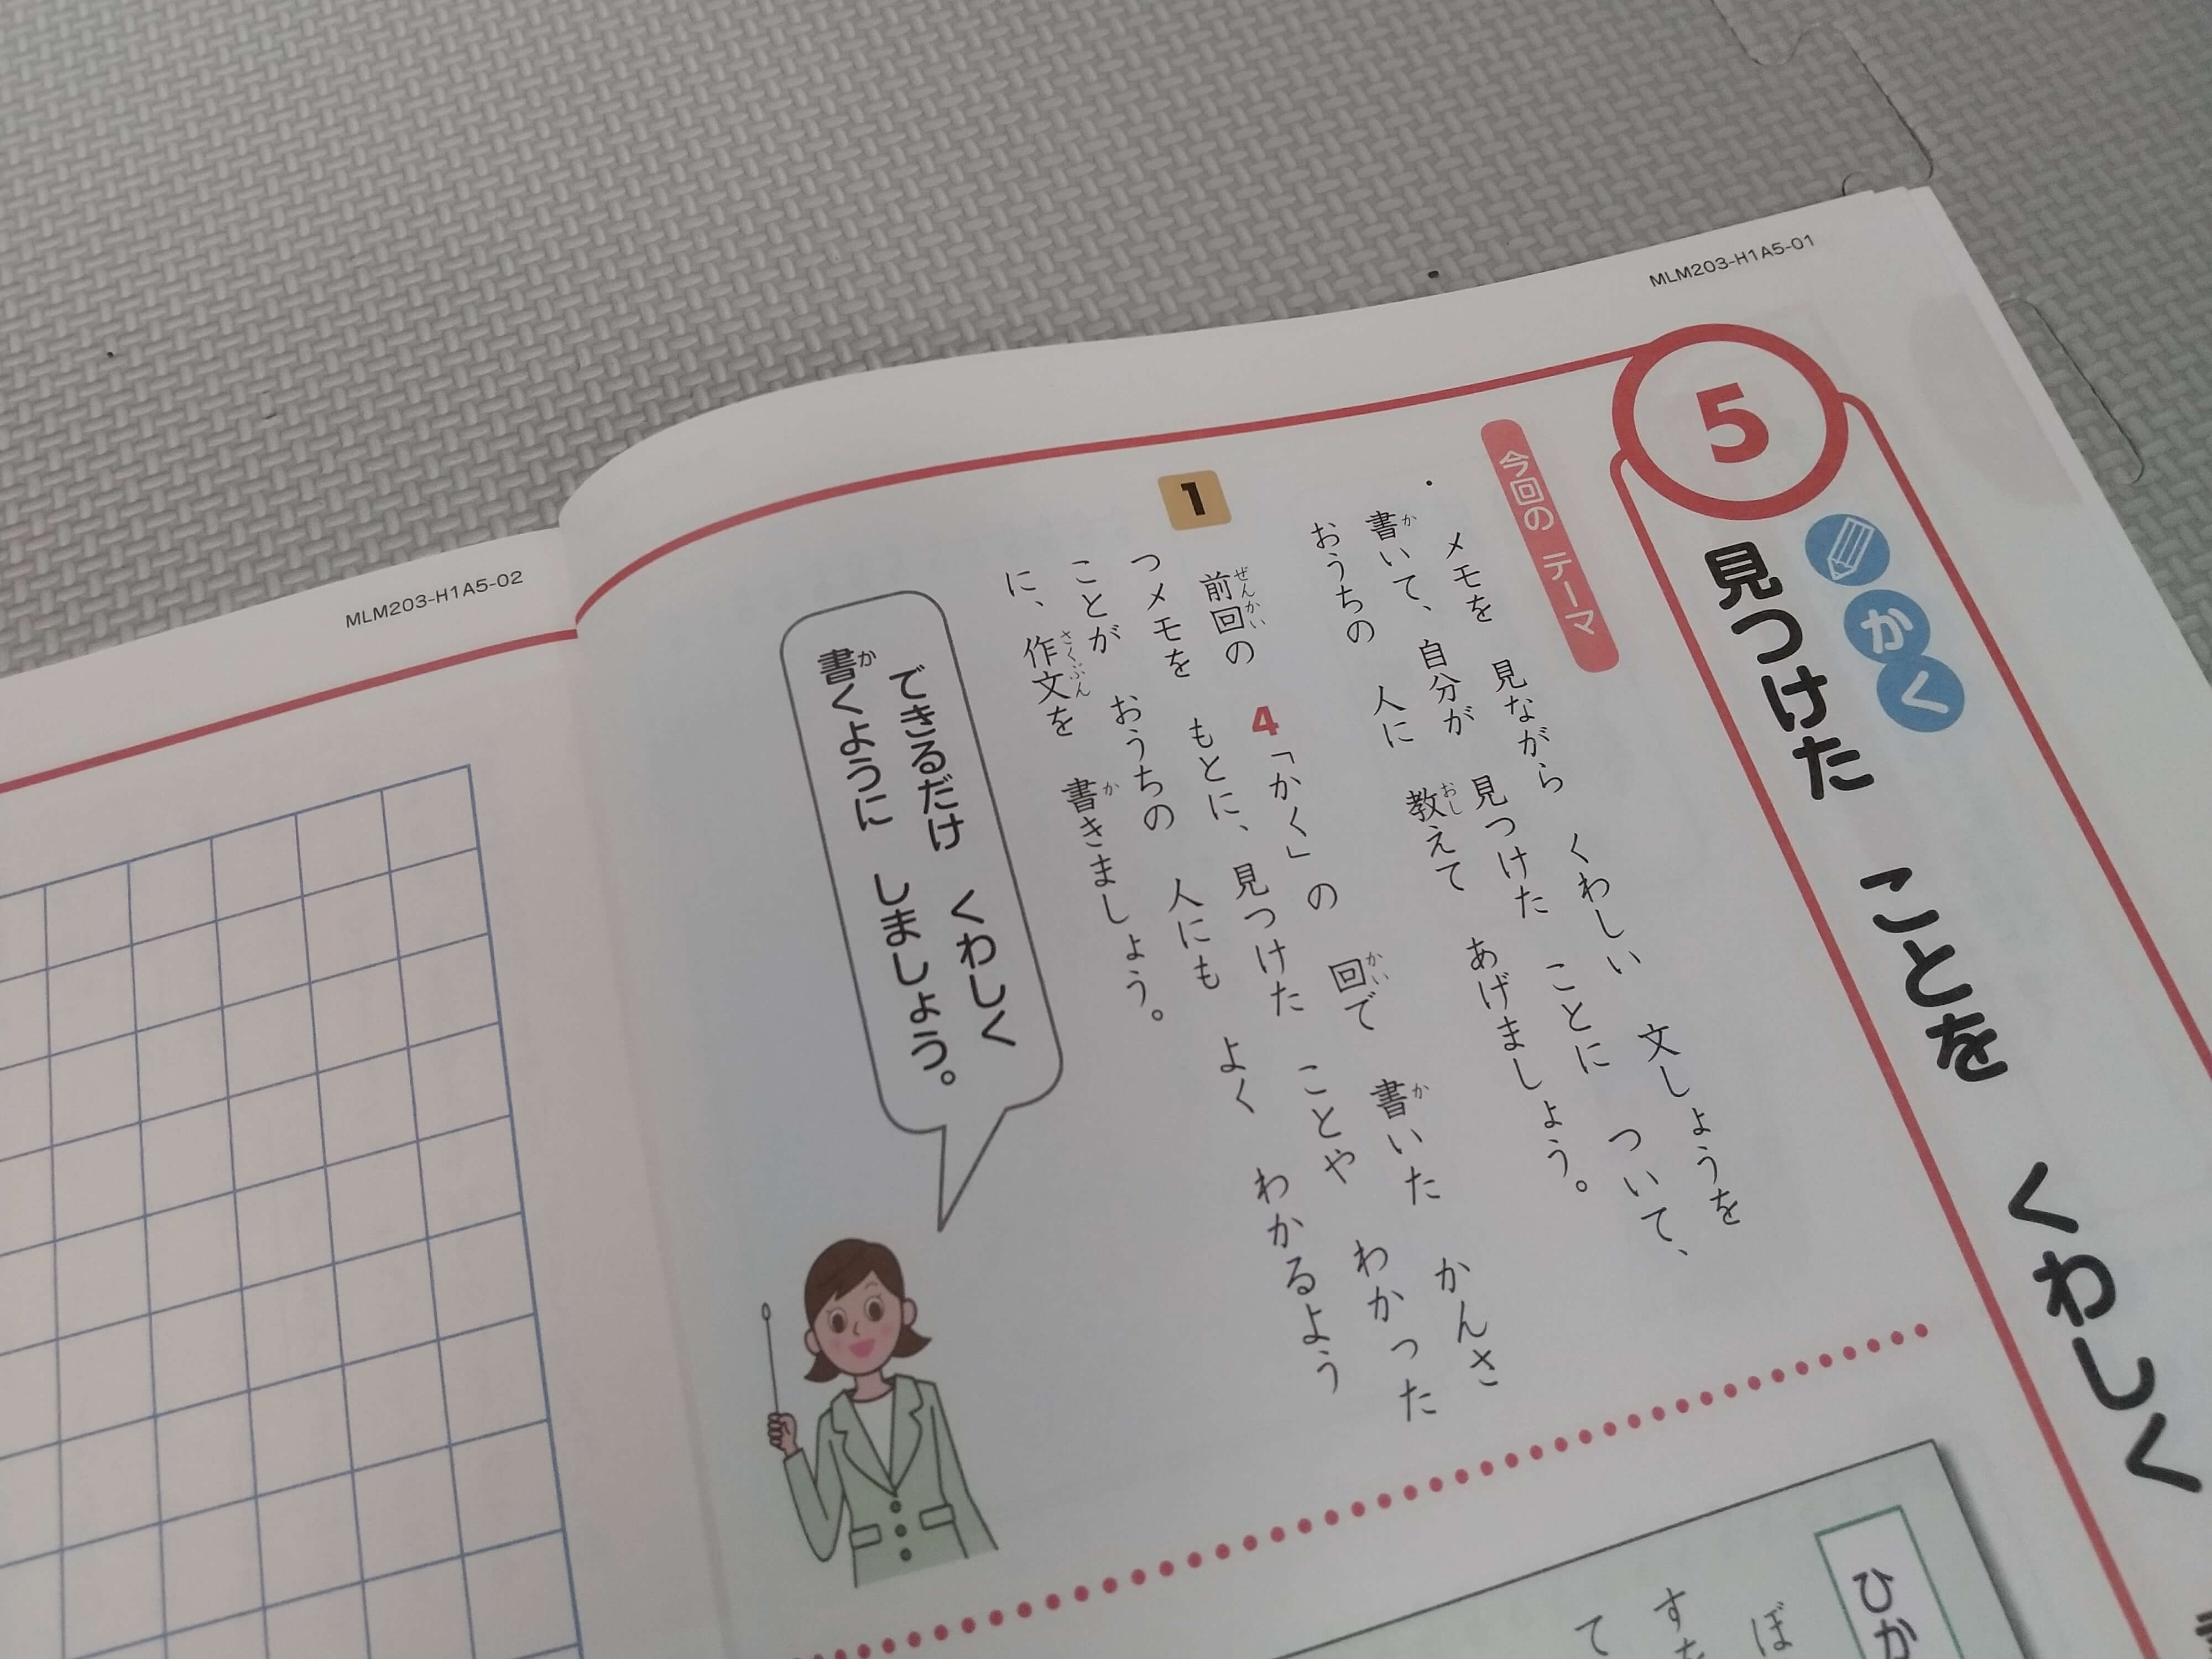 MLM203-H1A5-01
5
かく
見つけた ことを くわしく
今回の テーマ
メモを 見ながら くわしい 文しょうを
書いて、自分が 見つけた ことに ついて、
おうちの 人に 教えて あげましょう。
1
前回の 4「かく」の 回で 書いた かんさ
つメモを もとに、見つけた ことや わかった
ことが おうちの 人にも よく わかるよう
に、作文を 書きましょう。
できるだけ くわしく
書くように しましょう。
ひか
ぼ
す
て
MLM203-H1A5-02